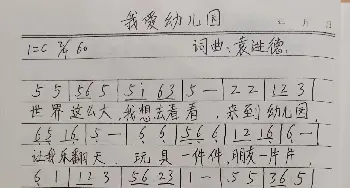 我爱幼儿园
年 月 日
1=C 2/4 60
词曲:袁胜德
5 5 | 56 5 | 51 63 | 5 — | 2 2 | 12 3 |
世界这么大,我想去看看,来到幼儿园,
65 16 | 5 — | 6 6 | 56 6 | 12 16 | 6 — |
让我乐翻天。玩具一件件,朋友一片片,
6 1 | 12 3 | 56 23 | 1 — | 5 5 | 36 5